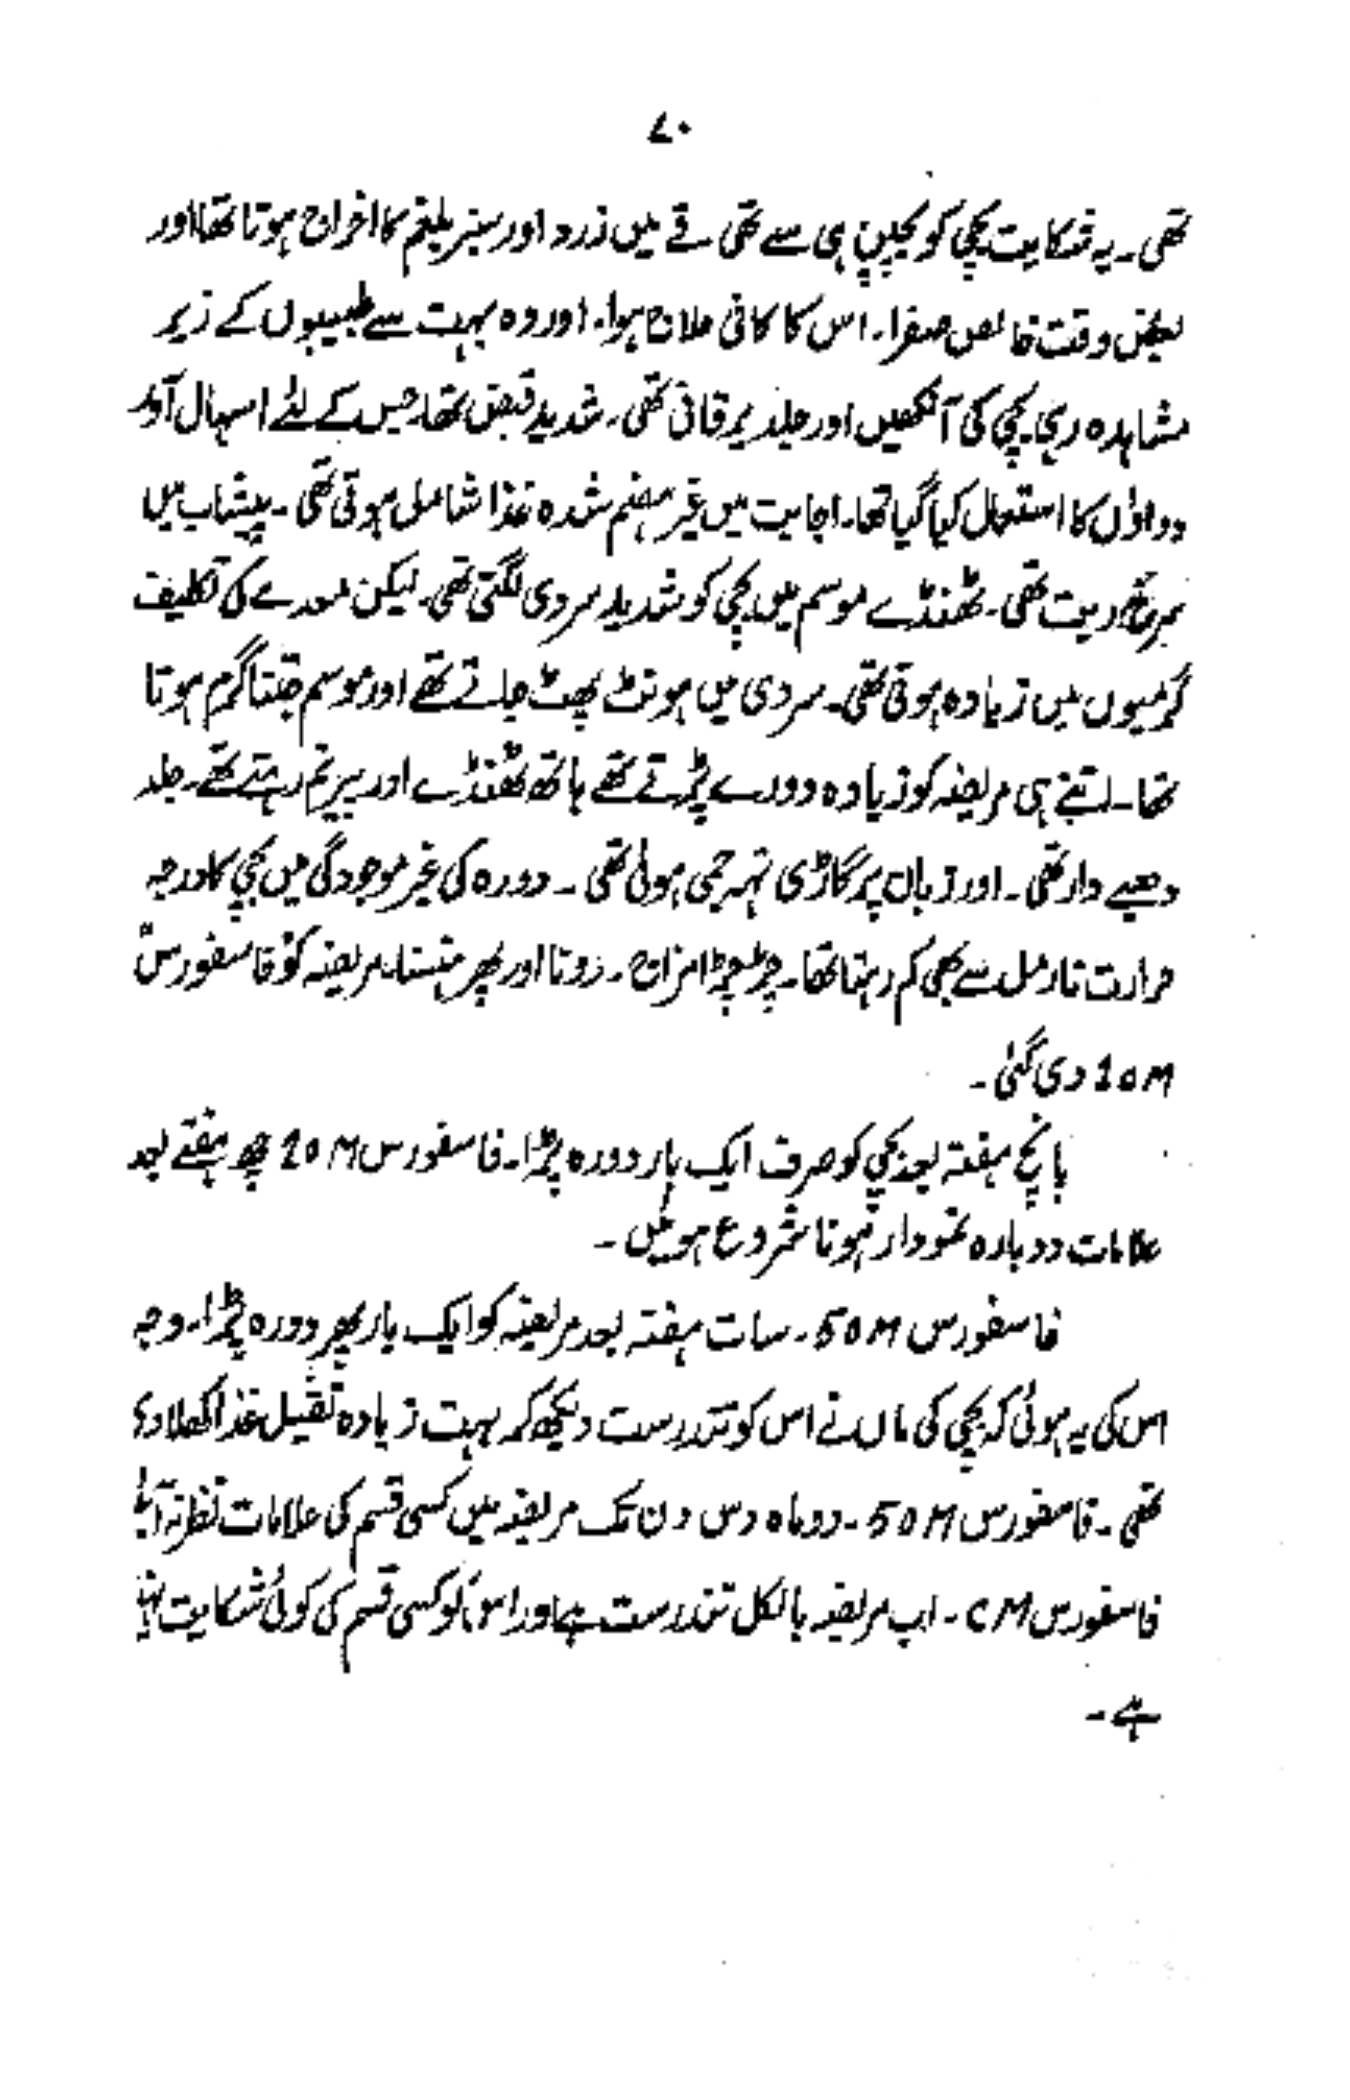 ۷۰
تھی۔ یہ شکایت بچی کو بچپن ہی سے تھی۔ قے میں زرد اور سبز بلغم کا اخراج ہوتا تھا اور
بعض وقت خالص صفرا۔ اس کا کافی علاج ہوا۔ اور وہ بہت سے طبیبوں کے زیر
مشاہدہ رہی۔ بچی کی آنکھیں اور جلد یرقانی تھی۔ شدید قبض تھا۔ جس کے لئے اسہال آور
دواؤں کا استعمال کیا گیا تھا۔ اجابت میں غیر ہضم شدہ غذا شامل ہوتی تھی۔ پیشاب میں
تھی۔ ٹھنڈے موسم میں بچی کو شدید سردی لگتی تھی۔ لیکن معدے کی تکلیف
گرمیوں میں زیادہ ہوتی تھی۔ سردی میں ہونٹ پھٹ جاتے تھے اور موسم جتنا گرم ہوتا
تھا۔ اتنے ہی مریضہ کو زیادہ دورے پڑتے تھے ہاتھ ٹھنڈے اور پیر نم رہتے تھے۔ جلد
دھبے دار تھی۔ اور زبان پر گاڑی تہہ جمی ہوئی تھی۔ دورہ کی غیر موجودگی میں بچی کا درجہ
حرارت نارمل سے بھی کم رہتا تھا۔ چڑچڑا مزاج۔ رونا اور پھر ہنسنا۔ مریضہ کو "فاسفورس"
10M دی گئی۔
پانچ ہفتہ بعد بچی کو صرف ایک بار دورہ پڑا۔ فاسفورس 10M چھ ہفتے بعد
علامات دوبارہ نمودار ہونا شروع ہوئیں۔
فاسفورس 50M۔ سات ہفتہ بعد مریضہ کو ایک بار پھر دورہ پڑا۔ وجہ
اس کی یہ ہوئی کہ بچی کی ماں نے اس کو تندرست دیکھ کر بہت زیادہ ثقیل غذا کھلا دی
تھی۔ فاسفورس 50M۔ دو ماہ دس دن تک مریضہ میں کسی قسم کی علامات نظر نہ آیا
فاسفورس CM۔ اب مریضہ بالکل تندرست ہے اور اس کو کسی قسم کی کوئی شکایت نہیں
ہے۔